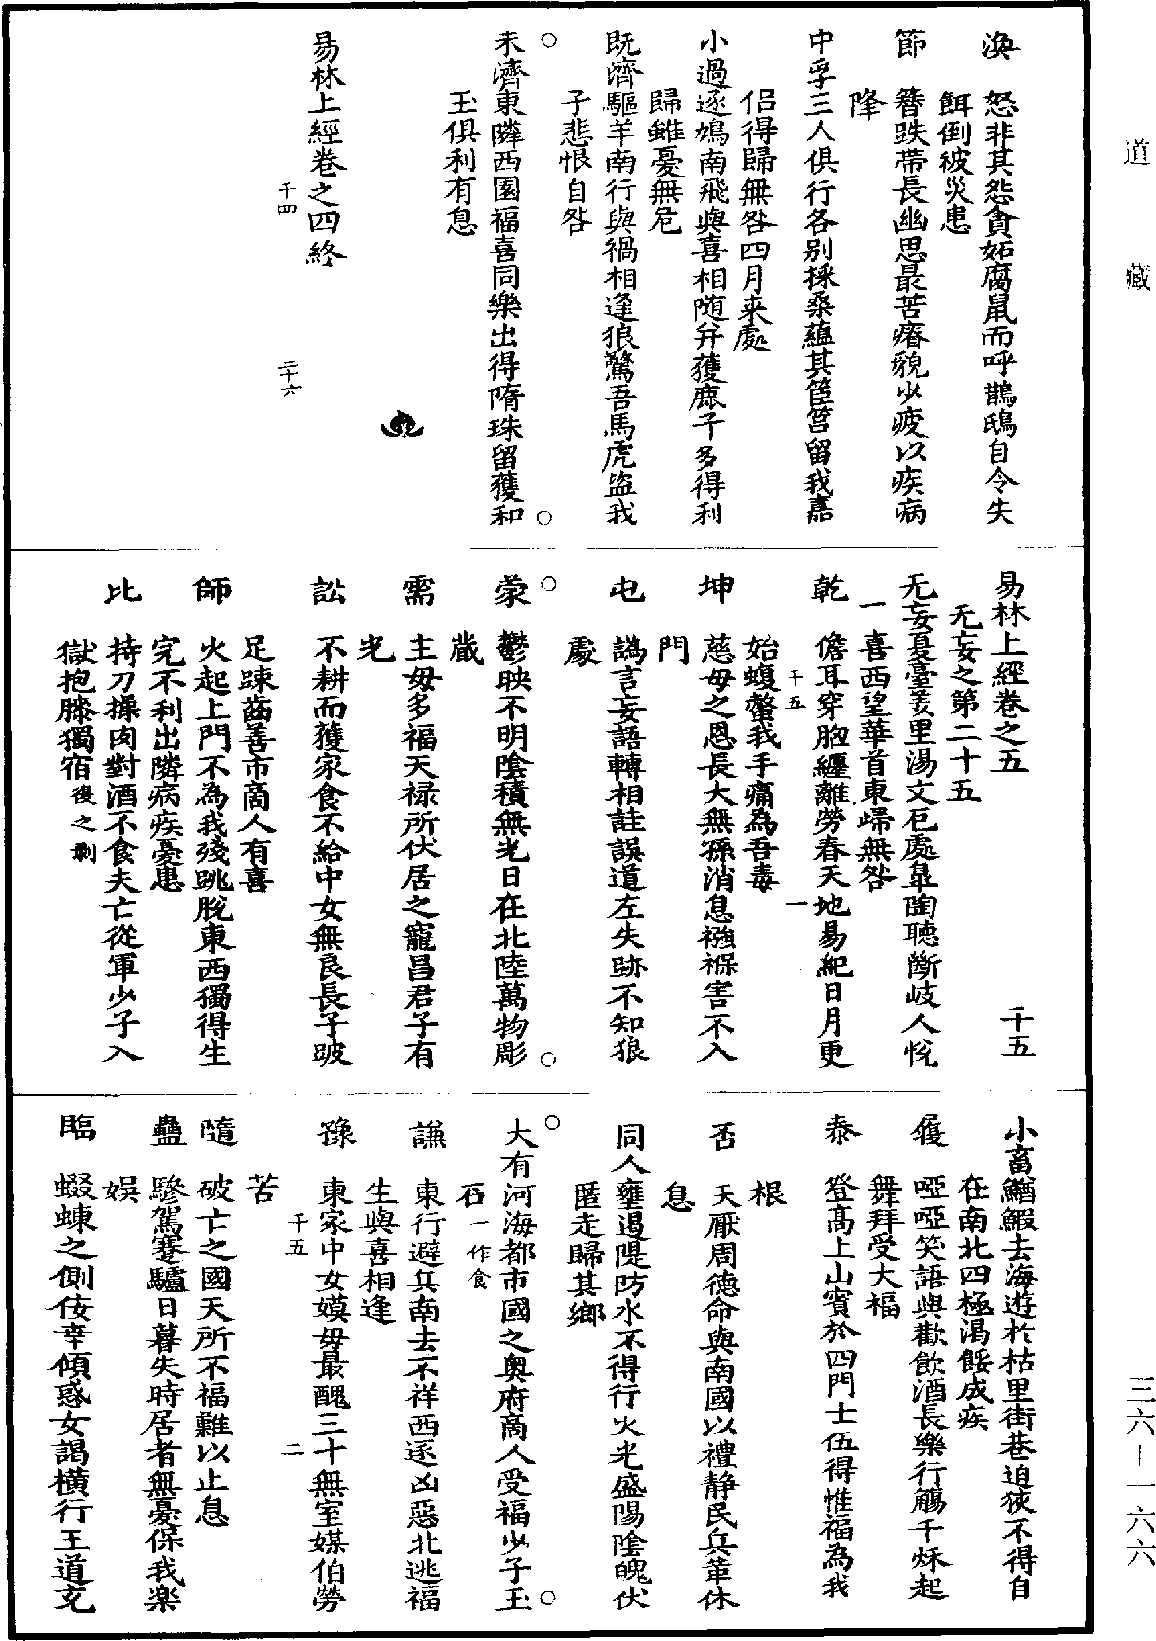 道藏
三六—一六六
渙　怒非其怨貪妬腐鼠而呼鵲鴟自令失
餌倒被災患
節　簪跌帶長幽思最苦瘠貌少疲以疾病
降
中孚三人俱行各別採桑蘊其筐筥留我嘉
侶得歸無咎四月來處
小過逐鳩南飛與喜相隨并獲鹿子多得利
歸雖憂無危
既濟驅羊南行與禍相逢狼驚吾馬虎盜我
子悲恨自咎
未濟東隣西國福喜同樂出得隋珠留獲和
玉俱利有息
易林上經卷之四終
千四　二十六
易林上經卷之五　千五
无妄之第二十五
无妄夏臺羑里湯文厄處臯陶聽斷岐人悅
喜西望華首東歸無咎
乾　儋耳穿胸纏離勞春天地易紀日月更
千五　一
始蝮螫我手痛為吾毒
坤　慈母之恩長大無孫消息襁褓害不入
門
屯　譌言妄語轉相詿誤道左失跡不知狼
處
蒙　鬱映不明陰積無光日在北陸萬物彫
藏
需　主母多福天祿所伏居之寵昌君子有
光
訟　不耕而獲家食不給中女無良長子跛
足踈齒善市商人有喜
師　火起上門不為我殘跳脫東西獨得生
完不利出隣病疾憂患
比　持刀操肉對酒不食夫亡從軍少子入
獄抱膝獨宿後之剝
小畜鰌鰕去海遊於枯里街巷迫狹不得自
在南北四極渴餒成疾
履　啞啞笑語與歡飲酒長樂行觴千秌起
舞拜受大福
泰　登高上山賓於四門士伍得惟福為我
根
否　天厭周德命與南國以禮靜民兵革休
息
同人壅遏隄防水不得行火光盛陽陰魄伏
匿走歸其鄉
大有河海都市國之奧府商人受福少子玉
石一作食
謙　東行避兵南去不祥西逐凶惡北逃福
生與喜相逢
豫　東家中女嫫母最醜三十無室媒伯勞
千五　二
苦
隨　破亡之國天所不福難以止息
蠱　驂駕蹇驢日暮失時居者無憂保我樂
娛
臨　蝃蝀之側佞幸傾惑女謁橫行王道充